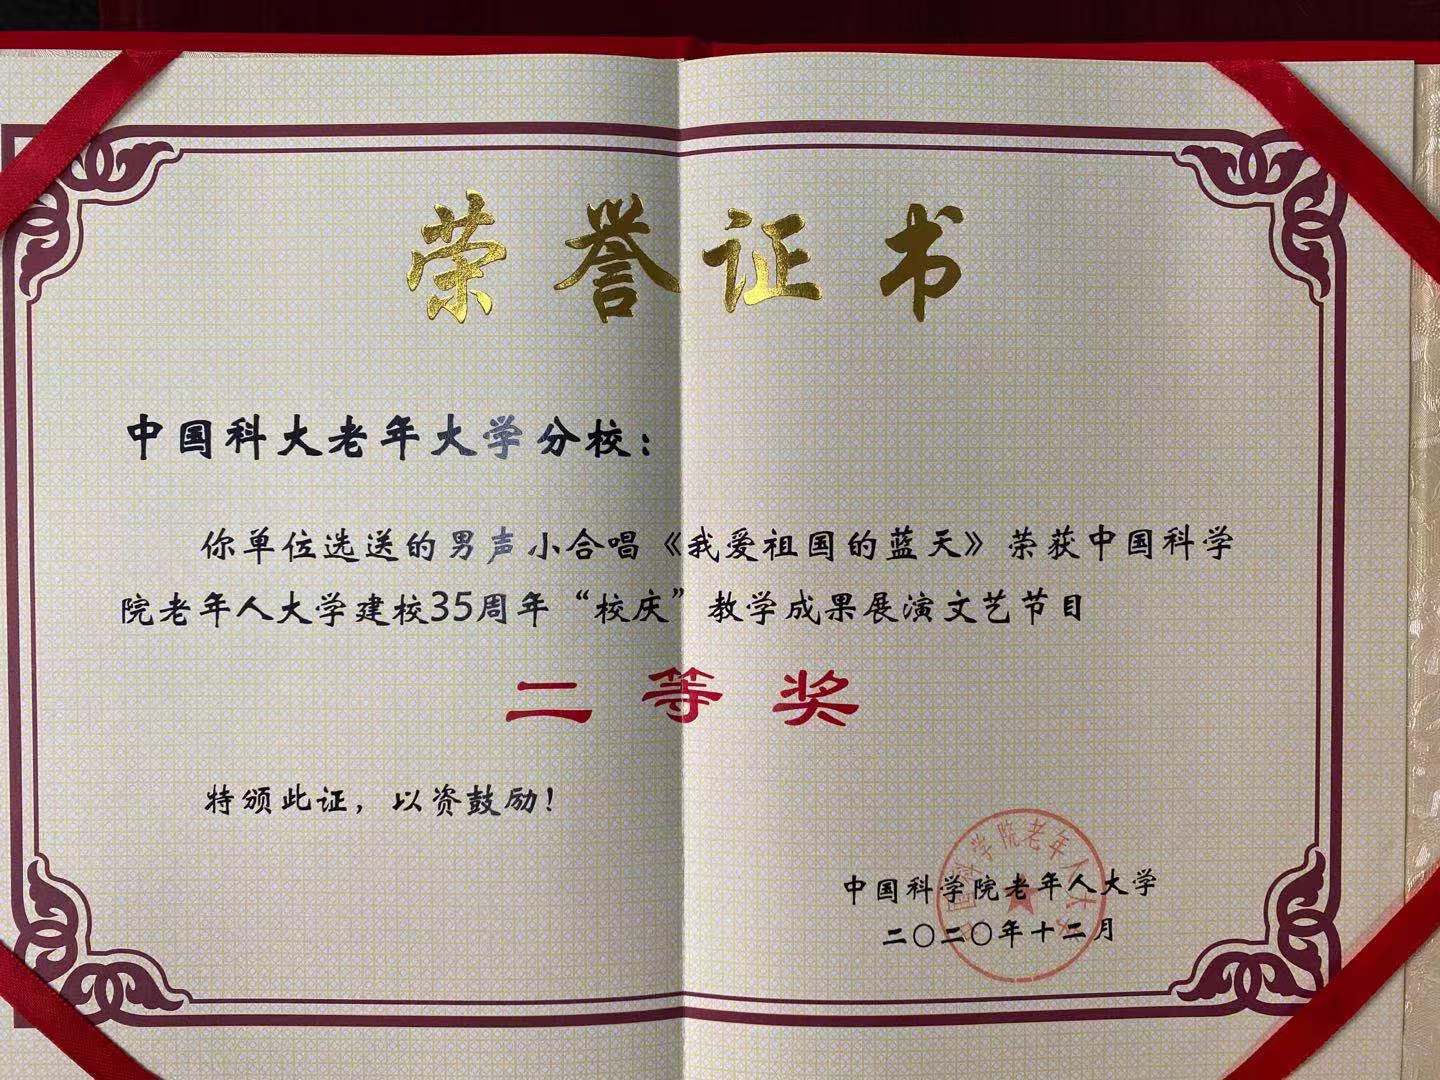 荣誉证书
中国科大老年大学分校：
你单位选送的男声小合唱《我爱祖国的蓝天》荣获中国科学
院老年人大学建校35周年“校庆”教学成果展演文艺节目
二等奖
特颁此证，以资鼓励！
中国科学院老年人大学
中国科学院老年人大学
二〇二〇年十二月